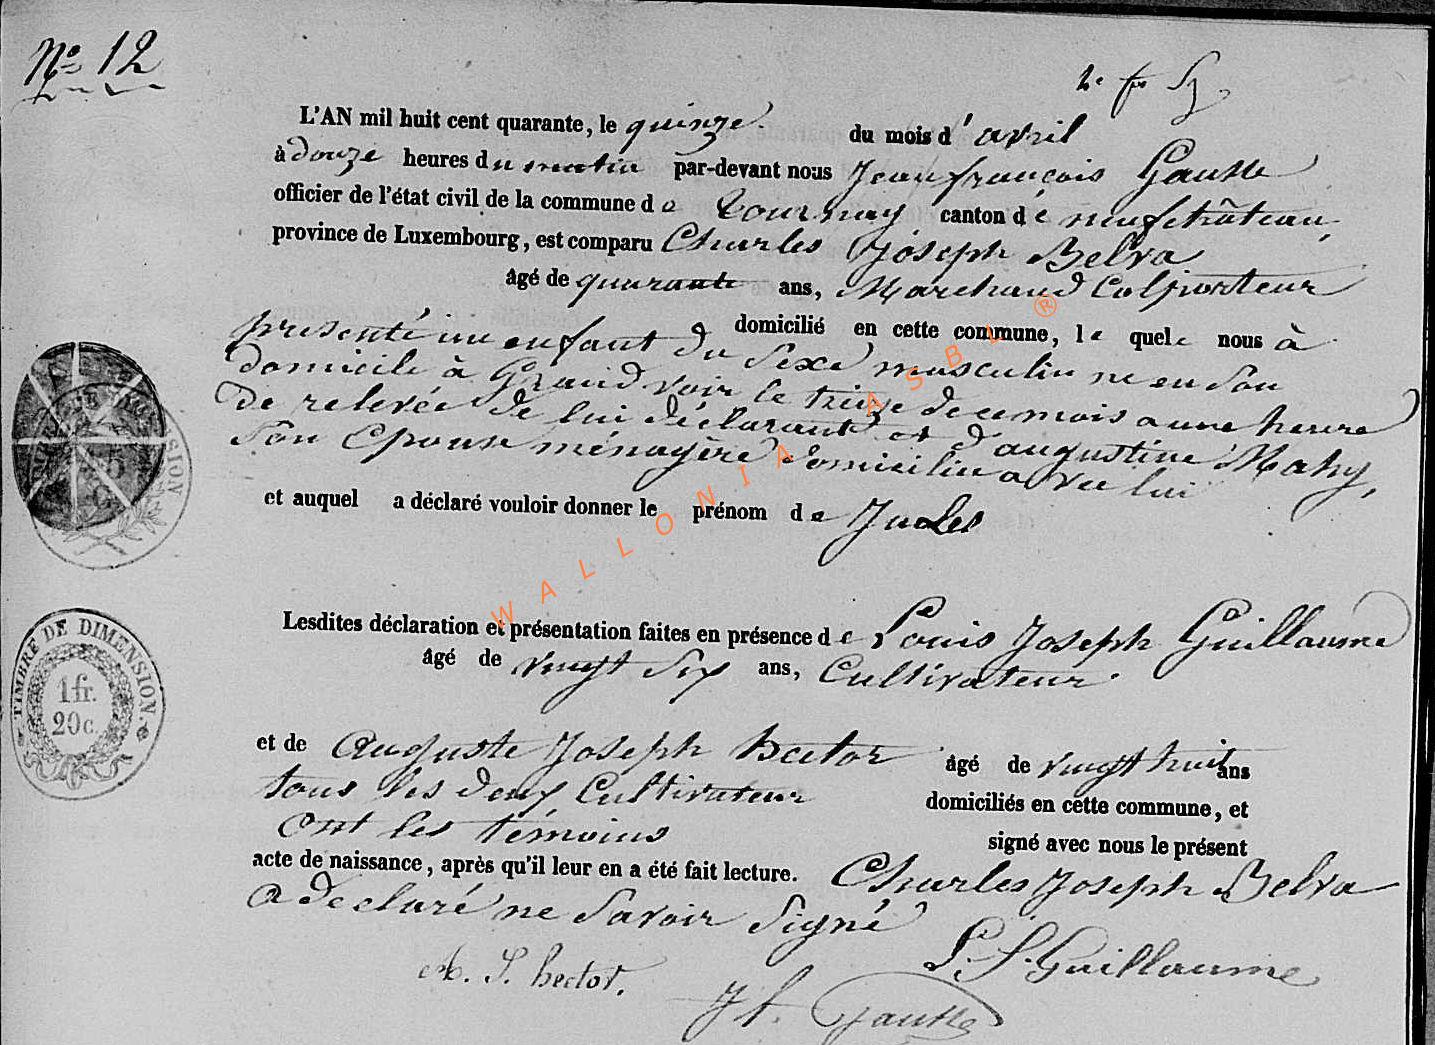 Nº 12
L'AN mil huit cent quarante, le quinze du mois d' avril
à douze heures du matin par-devant nous Jean françois Gausse
officier de l'état civil de la commune de Tournay canton dé neufchâteau,
province de Luxembourg, est comparu Charles Joseph Belva
âgé de quarante ans, Marchand Colporteur
domicilié en cette commune, le quele nous à
présenté un enfant du Sexe masculin né en Son
domicile à Grand voir le treize de ce mois a une heure
de relevée de lui déclarant et d'augustine Mahy,
Son Epouse ménagère domiciliée avec lui
et auquel a déclaré vouloir donner le prénom de Jules
Lesdites déclaration et présentation faites en présence de Louis Joseph Guillaume
âgé de vingt Six ans, Cultivateur
et de Auguste Joseph hector âgé de vingt huit ans
tous les deux Cultivateur domiciliés en cette commune, et
Ont les témoins signé avec nous le présent
acte de naissance, après qu'il leur en a été fait lecture. Charles Joseph Belva
A déclaré ne Savoir Signé
L. J. Guillaume
A. J. hector.
J f. Gausse
TIMBRE DE DIMENSION.
1fr.
20c.
WALLONIA ASBL ®